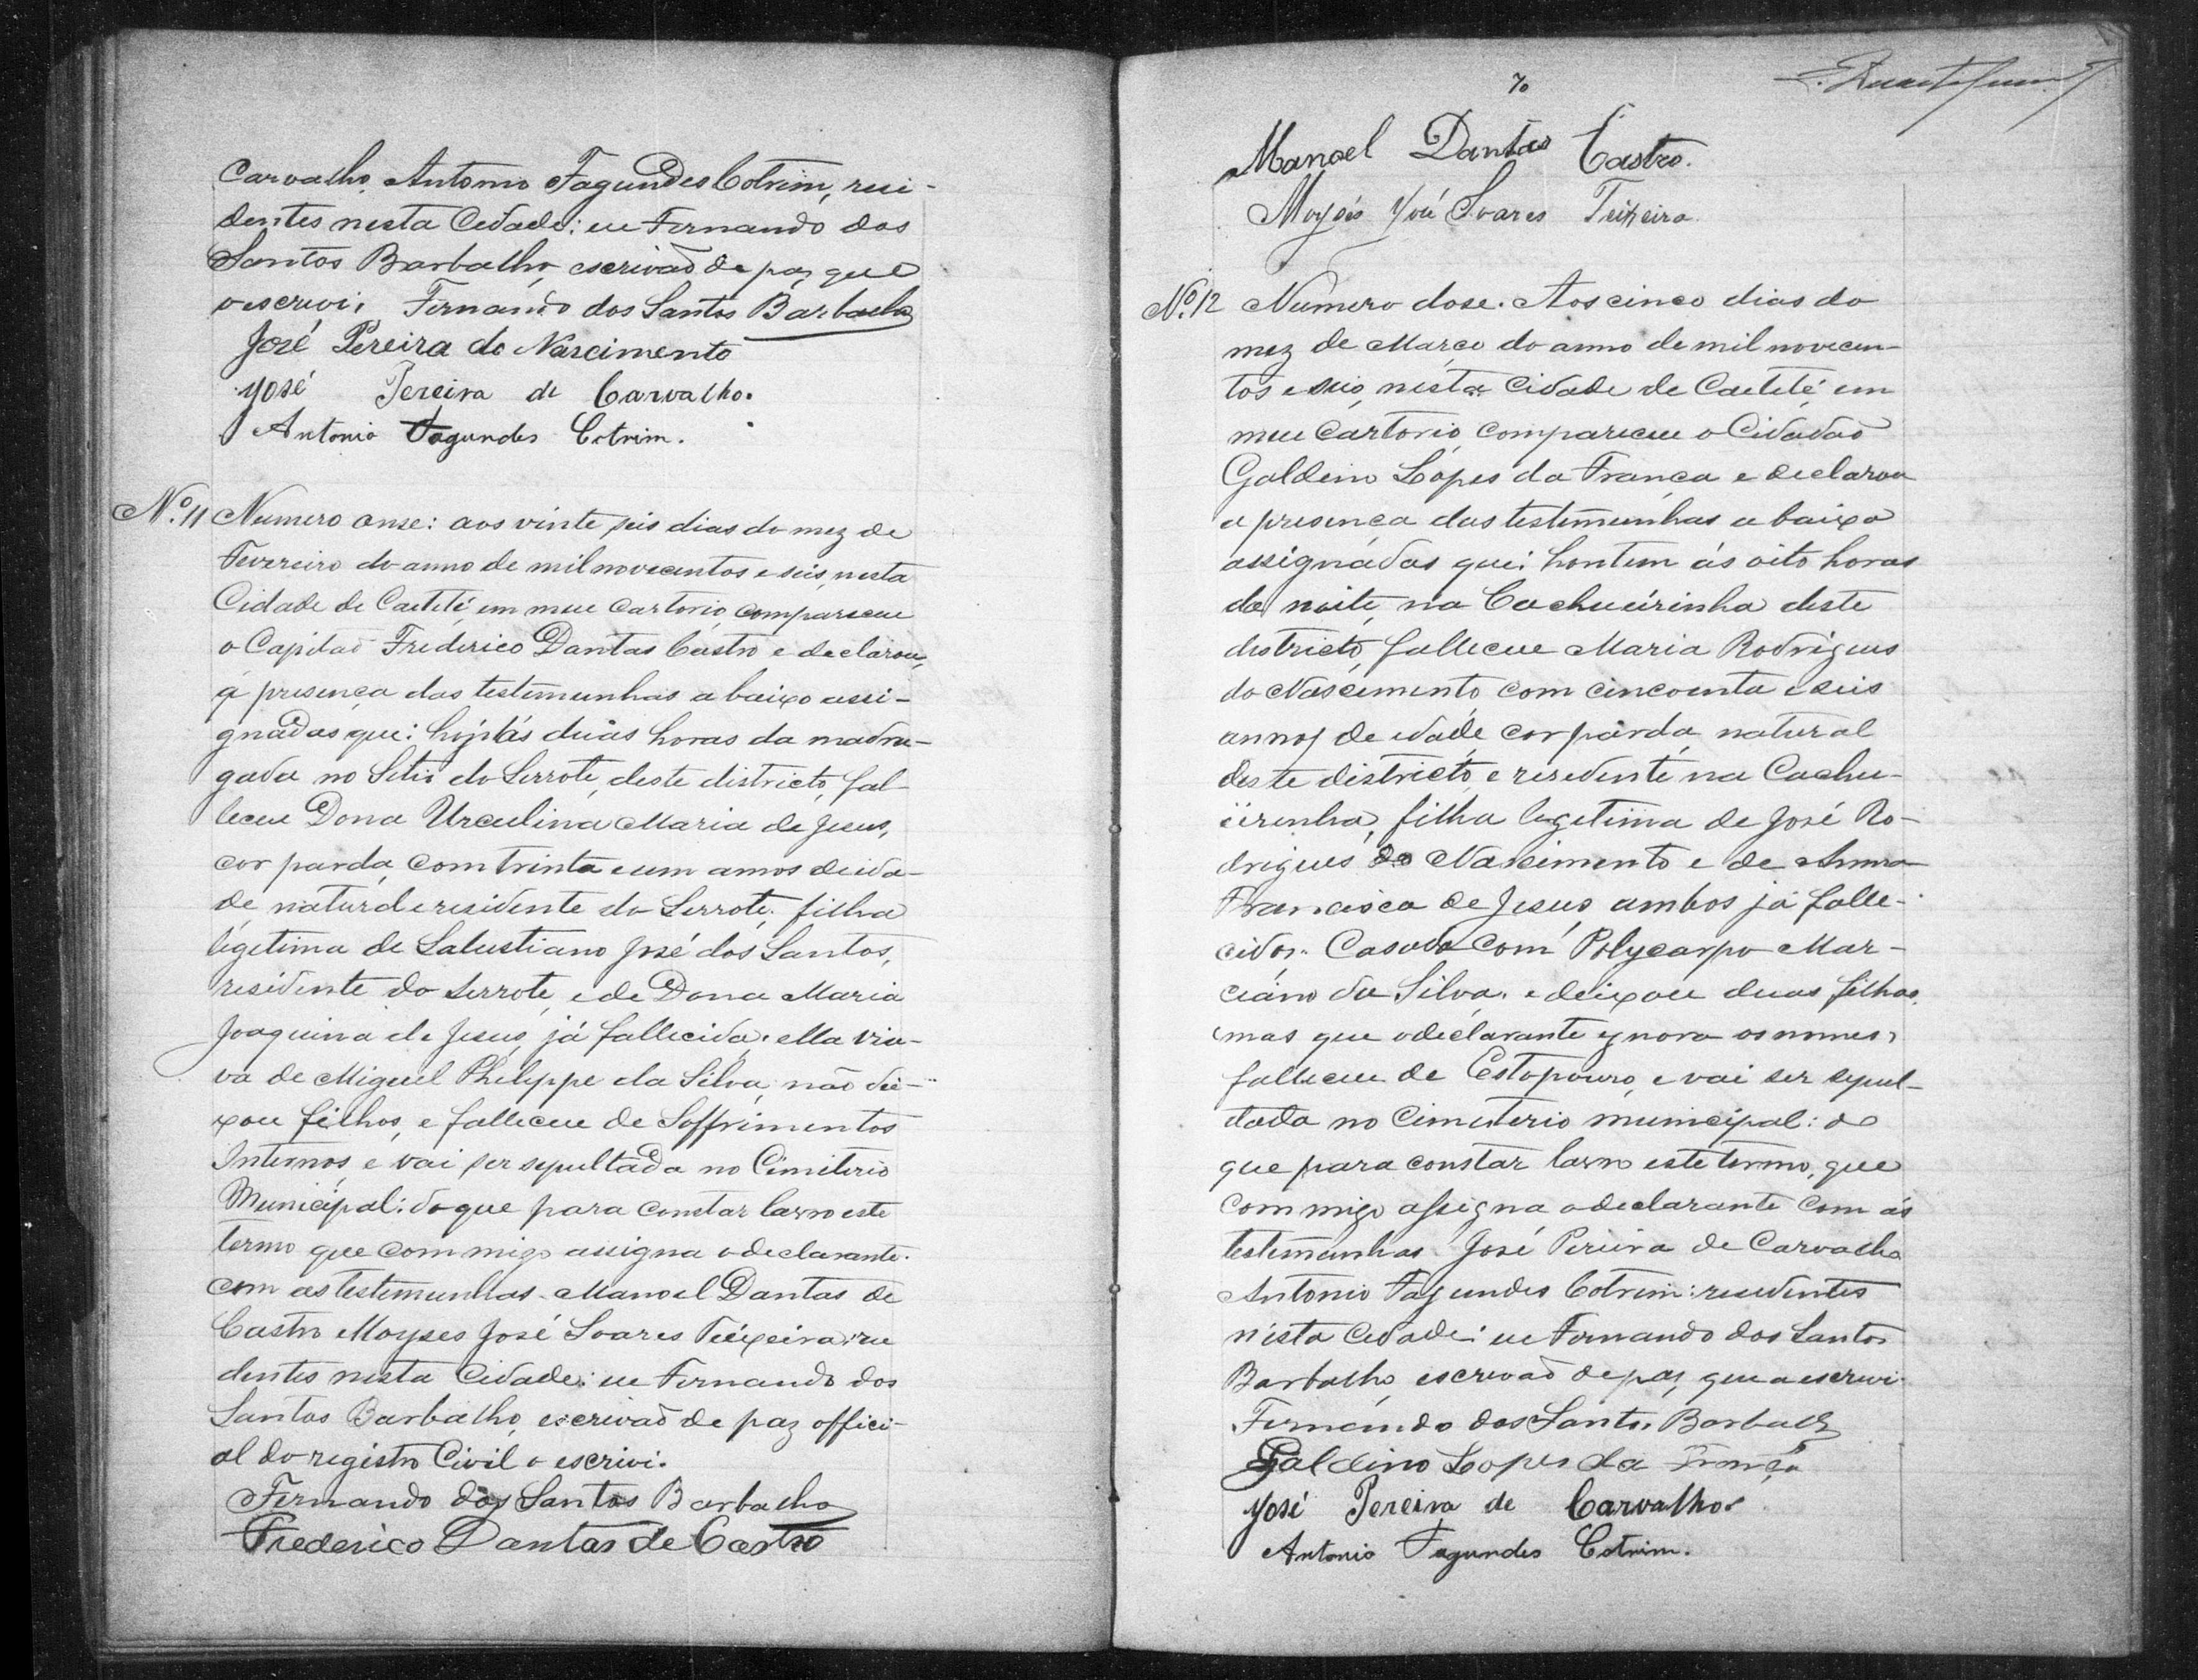 Carvalho, Antonio Fagundes Cotrim, resi-
dentes nesta Cidade: eu Fernando dos
Santos Barbalho, escrivaõ de paz que
o escrevi. Fernando dos Santos Barbalho
José Pereira do Nascimento
José Pereira de Carvalho.
Antonio Fagundes Cotrim.
Nº. 11 Numero onse: aos vinte seis dias do mez de
Fevereiro do anno de mil novecentos e seis, nesta
Cidade de Caetité, em meu Cartorio, compareceu
o Capitaõ Frederico Dantas Castro e declarou,
á presença das testemunhas a baixo assi-
gnadas que: hoje ás duas horas da madru-
gada no Sitio do Serrote, deste districto, fal-
leceu Dona Urculina Maria de Jesus,
cor parda, com trinta e um annos de ida-
de, natural e residente do Serrote, filha
legetima de Salustiano José dos Santos,
residente do Serrote, e de Dona Maria
Joaquina de Jesus, já fallecida. ella viu-
va de Miguel Philippe da Silva, não dei-
xou filhos, e falleceu de Soffrimentos
Internos e vai ser sepultada no Cimiterio
Municipal: do que para constar lavro este
termo que commigo assigna o declarante.
com as testemunhas Manoel Dantas de
Castro Moyses José Soares Teixeira: resi
dentes nesta Cidade: eu Fernando dos
Santos Barbalho, escrivaõ de paz offici-
al do registro Civil o escrivi.
Fernando dos Santos Barbalho
Frederico Dantas de Castro
70
Manoel Dantas Castro.
Moysés José Soares Teixeira
Nº. 12 Numero dose. Aos cinco dias do
mez de Março do anno de mil novecen-
tos e seis, nesta Cidade de Caetité em
meu Cartorio, compareceu o Cidadaõ
Galdino Lopes da França e declarou
a presença das testemunhas a baixo
assignadas que: hontem ás oito horas
da noite, na Cachueirinha deste
districto, falleceu Maria Rodrigues
do Nascimento, com cincoenta e seis
annos de idade, cor parda, natural
deste districto, e residente na Cachu-
eirinha, filha legetima de José Ro-
drigues do Nascimento e de Anna
Francisca de Jesus, ambos já falle-
cidos. Casada com Polycarpo Mar-
ciano da Silva. e deixou duas filhas,
mas que o declarante ignora os nomes,
falleceu de Estopouro, e vai ser sepul-
tada no Cimiterio municipal: do
que para constar lavro este termo, que
commigo assigna o declarante com ás
testemunhas José Pereira de Carvalho
Antonio Fagundes Cotrim: residentes
nesta Cidade: eu Fernando dos Santos
Barbalho escrivaõ de paz, que o escrevi.
Fernando dos Santos Barbalho
Galdino Lopes da França
José Pereira de Carvalho
Antonio Fagundes Cotrim.